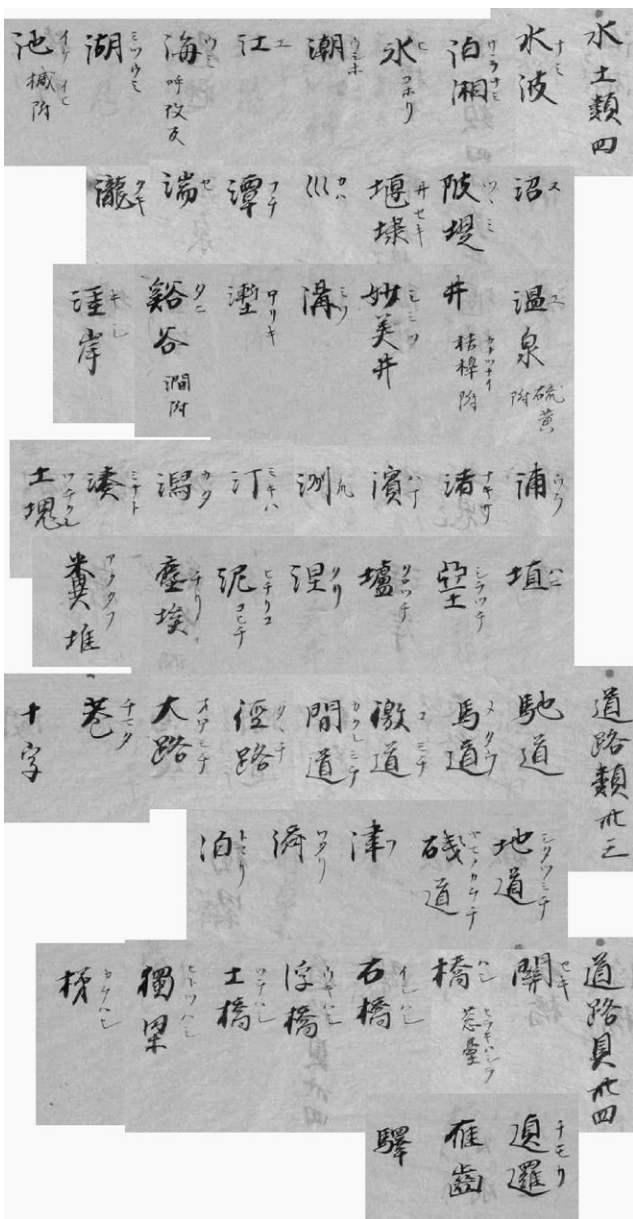 水土類四
水波 ナミ
泊湘
氷 ヒ コホリ
潮 ウシホ
江 エ
海 ウミ 呼攺反
湖 ミツウミ
池 イケ イヒ 槭附
沼 ヌ
陂堤 ツヽミ
堰埭 井セキ
巛 カハ
潭 フチ
湍 セ
瀧 タキ
温泉 ユ 硫黄附
井 桔槹附
妙美井 シミツ
溝 ミソ
壍 ホリキ
谿谷 タニ 澗附
涯岸 キシ
浦 ウラ
渚 ナキサ
濱 ハマ
洲 ス
汀 ミキハ
潟 カタ
湊 ミナト
土塊 ツチクレ
埴 ハニ
堊 シラツチ
壚 クロツチ
涅 クリ
泥 ヒチリコ コヒチ
塵埃 チリ
糞堆 アクタフ
道路類卅三
馳道
馬道 メタウ
徼道 コミチ
間道 カクレミチ
徑路 タヽチ
大路 オホミチ
巷 チマタ
十字
地道 シタツミチ
道
津 ツ
濟 ワタリ
泊 トマリ
道路具卅四
關 セキ
橋 ハシ 葱臺
石橋 イシハシ
浮橋 ウキハシ
土橋 ツチハシ
獨梁 ヒトツハシ
梯 カケハシ
邏 チモリ
雁齒
驛